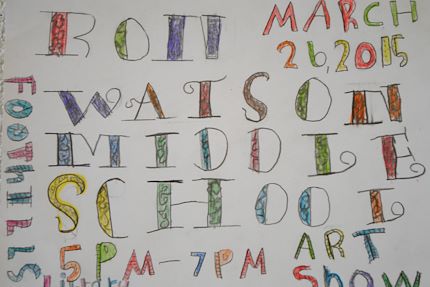 RON
MARCH
26, 2015
WATSON
MIDDLE
SCHOOL
5PM-7PM
ART
SHOW
FOOTHILLS